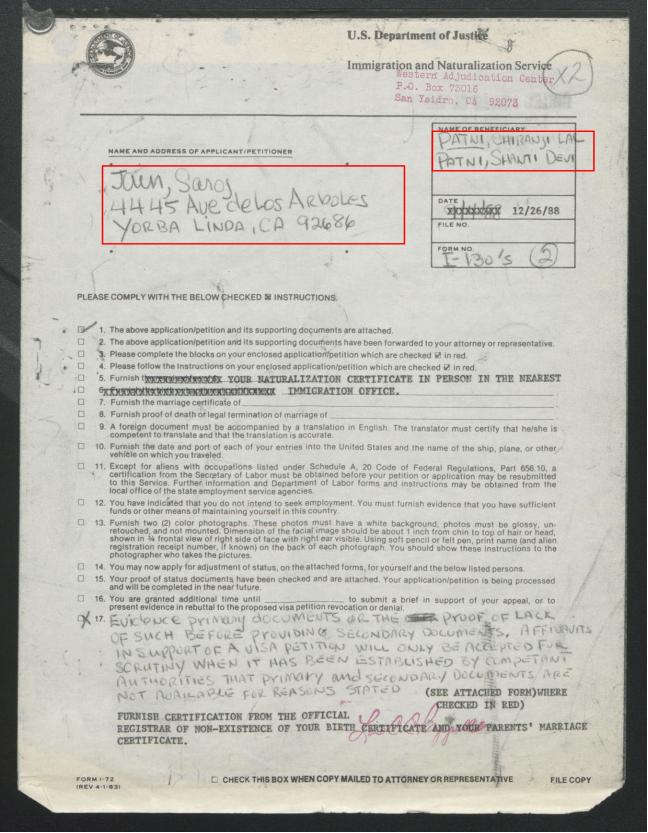 U.S. Department of Justice
Immigration and Naturalization Service
X2
Western Adjudication Center
P.O. Box 73016
San Ysidro, CA 92073
NAME OF BENEFICIARY
PATNI, CHIRANJI LAL
PATNI, SHANTI DEVI
NAME AND ADDRESS OF APPLICANT/PETITIONER
Jain, Saroj
4445 Ave de Los Arboles
YORBA LINDA, CA 92686
DATE
12/26/88
FILE NO.
FORM NO.
I-130's (2)
PLEASE COMPLY WITH THE BELOW CHECKED ☒ INSTRUCTIONS.
1. The above application/petition and its supporting documents are attached.
2. The above application/petition and its supporting documents have been forwarded to your attorney or representative.
3. Please complete the blocks on your enclosed application/petition which are checked ☑ in red.
4. Please follow the Instructions on your enclosed application/petition which are checked ☑ in red.
5. Furnish YOUR NATURALIZATION CERTIFICATE IN PERSON IN THE NEAREST
6. IMMIGRATION OFFICE.
7. Furnish the marriage certificate of
8. Furnish proof of death or legal termination of marriage of
9. A foreign document must be accompanied by a translation in English. The translator must certify that he/she is
competent to translate and that the translation is accurate.
10. Furnish the date and port of each of your entries into the United States and the name of the ship, plane, or other
vehicle on which you traveled.
11. Except for aliens with occupations listed under Schedule A, 20 Code of Federal Regulations, Part 656.10, a
certification from the Secretary of Labor must be obtained before your petition or application may be resubmitted
to this Service. Further information and Department of Labor forms and instructions may be obtained from the
local office of the state employment service agencies.
12. You have indicated that you do not intend to seek employment. You must furnish evidence that you have sufficient
funds or other means of maintaining yourself in this country.
13. Furnish two (2) color photographs. These photos must have a white background, photos must be glossy, un-
retouched, and not mounted. Dimension of the facial image should be about 1 inch from chin to top of hair or head,
shown in ¾ frontal view of right side of face with right ear visible. Using soft pencil or felt pen, print name (and alien
registration receipt number, if known) on the back of each photograph. You should show these instructions to the
photographer who takes the pictures.
14. You may now apply for adjustment of status, on the attached forms, for yourself and the below listed persons.
15. Your proof of status documents have been checked and are attached. Your application/petition is being processed
and will be completed in the near future.
16. You are granted additional time until to submit a brief in support of your appeal, or to
present evidence in rebuttal to the proposed visa petition revocation or denial.
X 17. Evidence primary documents OR THE PROOF OF LACK
OF SUCH BEFORE PROVIDING SECONDARY DOCUMENTS. AFFIDAVITS
IN SUPPORT OF A VISA PETITION WILL ONLY BE ACCEPTED FOR
SCRUTINY WHEN IT HAS BEEN ESTABLISHED BY COMPETANT
AUTHORITIES THAT PRIMARY and SECONDARY DOCUMENTS ARE
NOT AVAILABLE FOR REASONS STATED (SEE ATTACHED FORM)WHERE
CHECKED IN RED)
FURNISH CERTIFICATION FROM THE OFFICIAL
REGISTRAR OF NON-EXISTENCE OF YOUR BIRTH CERTIFICATE AND YOUR PARENTS' MARRIAGE
CERTIFICATE.
FORM I-72
(REV 4-1-83)
☐ CHECK THIS BOX WHEN COPY MAILED TO ATTORNEY OR REPRESENTATIVE
FILE COPY